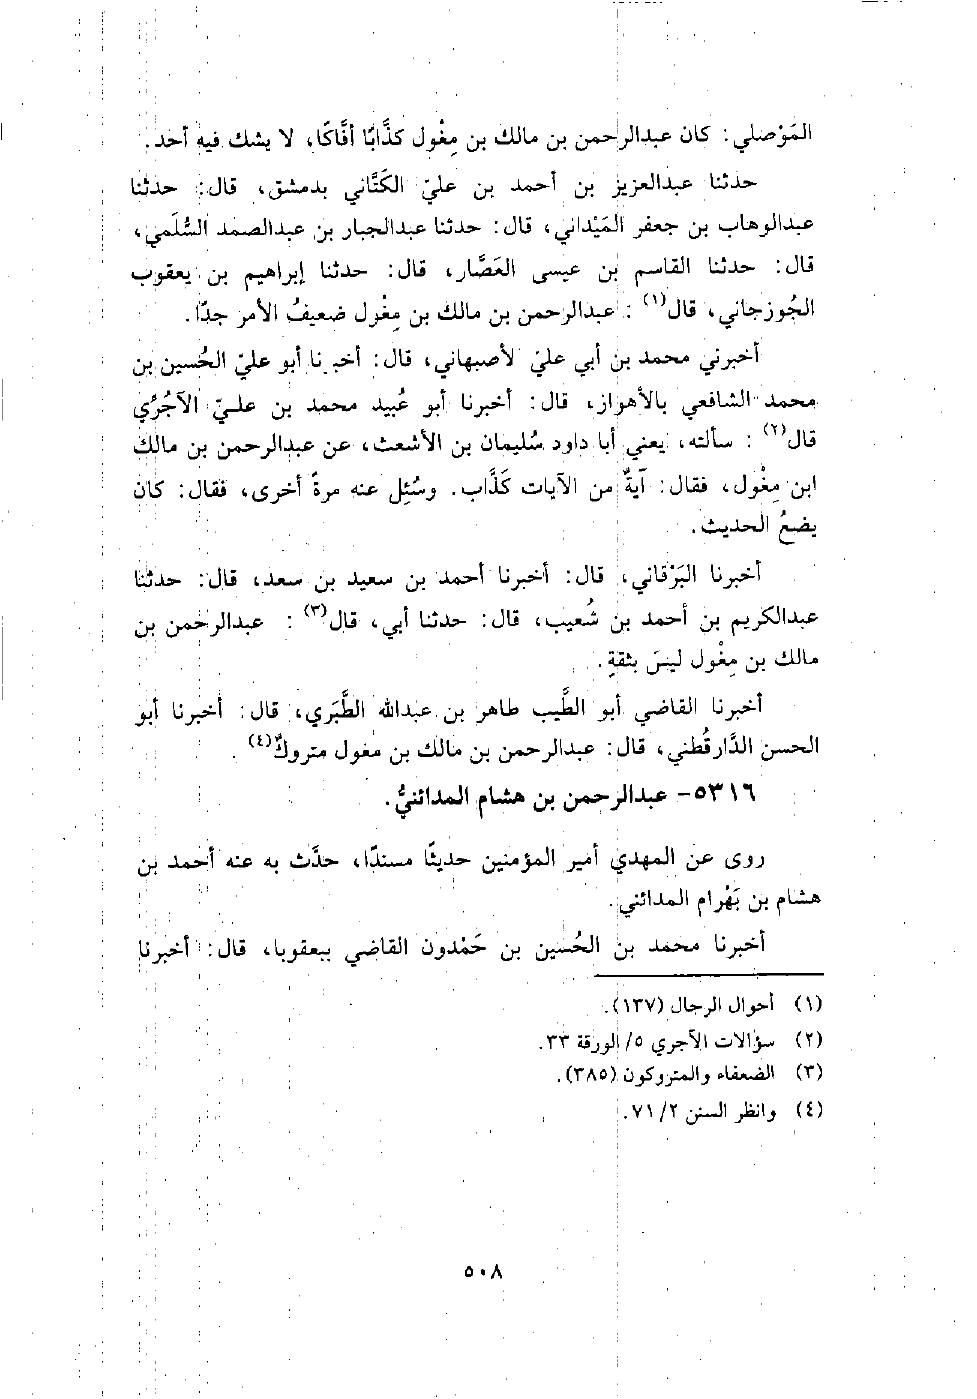 المَوْصلي: كان عبدالرحمن بن مالك بن مِغْول كذَّابًا أفَّاكًا، لا يشك فيه أحد.
حدثنا عبدالعزيز بن أحمد بن عليّ الكَتَّاني بدمشق، قال: حدثنا
عبدالوهاب بن جعفر المَيْداني، قال: حدثنا عبدالجبار بن عبدالصمد السُّلَمي،
قال: حدثنا القاسم بن عيسى العَصَّار، قال: حدثنا إبراهيم بن يعقوب
الجُوزجاني، قال(١): عبدالرحمن بن مالك بن مِغْول ضعيفُ الأمر جدًّا.
أخبرني محمد بن أبي عليّ الأصبهاني، قال: أخبرنا أبو عليّ الحُسين بن
محمد الشافعي بالأهواز، قال: أخبرنا أبو عُبيد محمد بن عليّ الآجُرِّي
قال(٢): سألته، يعني أبا داود سُليمان بن الأشعث، عن عبدالرحمن بن مالك
ابن مِغْول، فقال: آيةٌ من الآيات كَذَّاب. وسُئِل عنه مرةً أخرى، فقال: كان
يضعُ الحديث.
أخبرنا البَرْقاني، قال: أخبرنا أحمد بن سعيد بن سعد، قال: حدثنا
عبدالكريم بن أحمد بن شُعيب، قال: حدثنا أبي، قال(٣): عبدالرحمن بن
مالك بن مِغْول ليسَ بثقةٍ.
أخبرنا القاضي أبو الطَّيب طاهر بن عبدالله الطَّبَري، قال: أخبرنا أبو
الحسن الدَّارقُطني، قال: عبدالرحمن بن مالك بن مغول متروكٌ(٤).
٥٣١٦- عبدالرحمن بن هشام المدائنيُّ.
روى عن المهدي أمير المؤمنين حديثًا مسندًا، حدَّث به عنه أحمد بن
هشام بن بَهْرام المدائني.
أخبرنا محمد بن الحُسين بن حَمْدون القاضي ببعقوبا، قال: أخبرنا
(١) أحوال الرجال (١٣٧).
(٢) سؤالات الآجري ٥/ الورقة ٣٣.
(٣) الضعفاء والمتروكون (٣٨٥).
(٤) وانظر السنن ٢/ ٧١.
٥٠٨